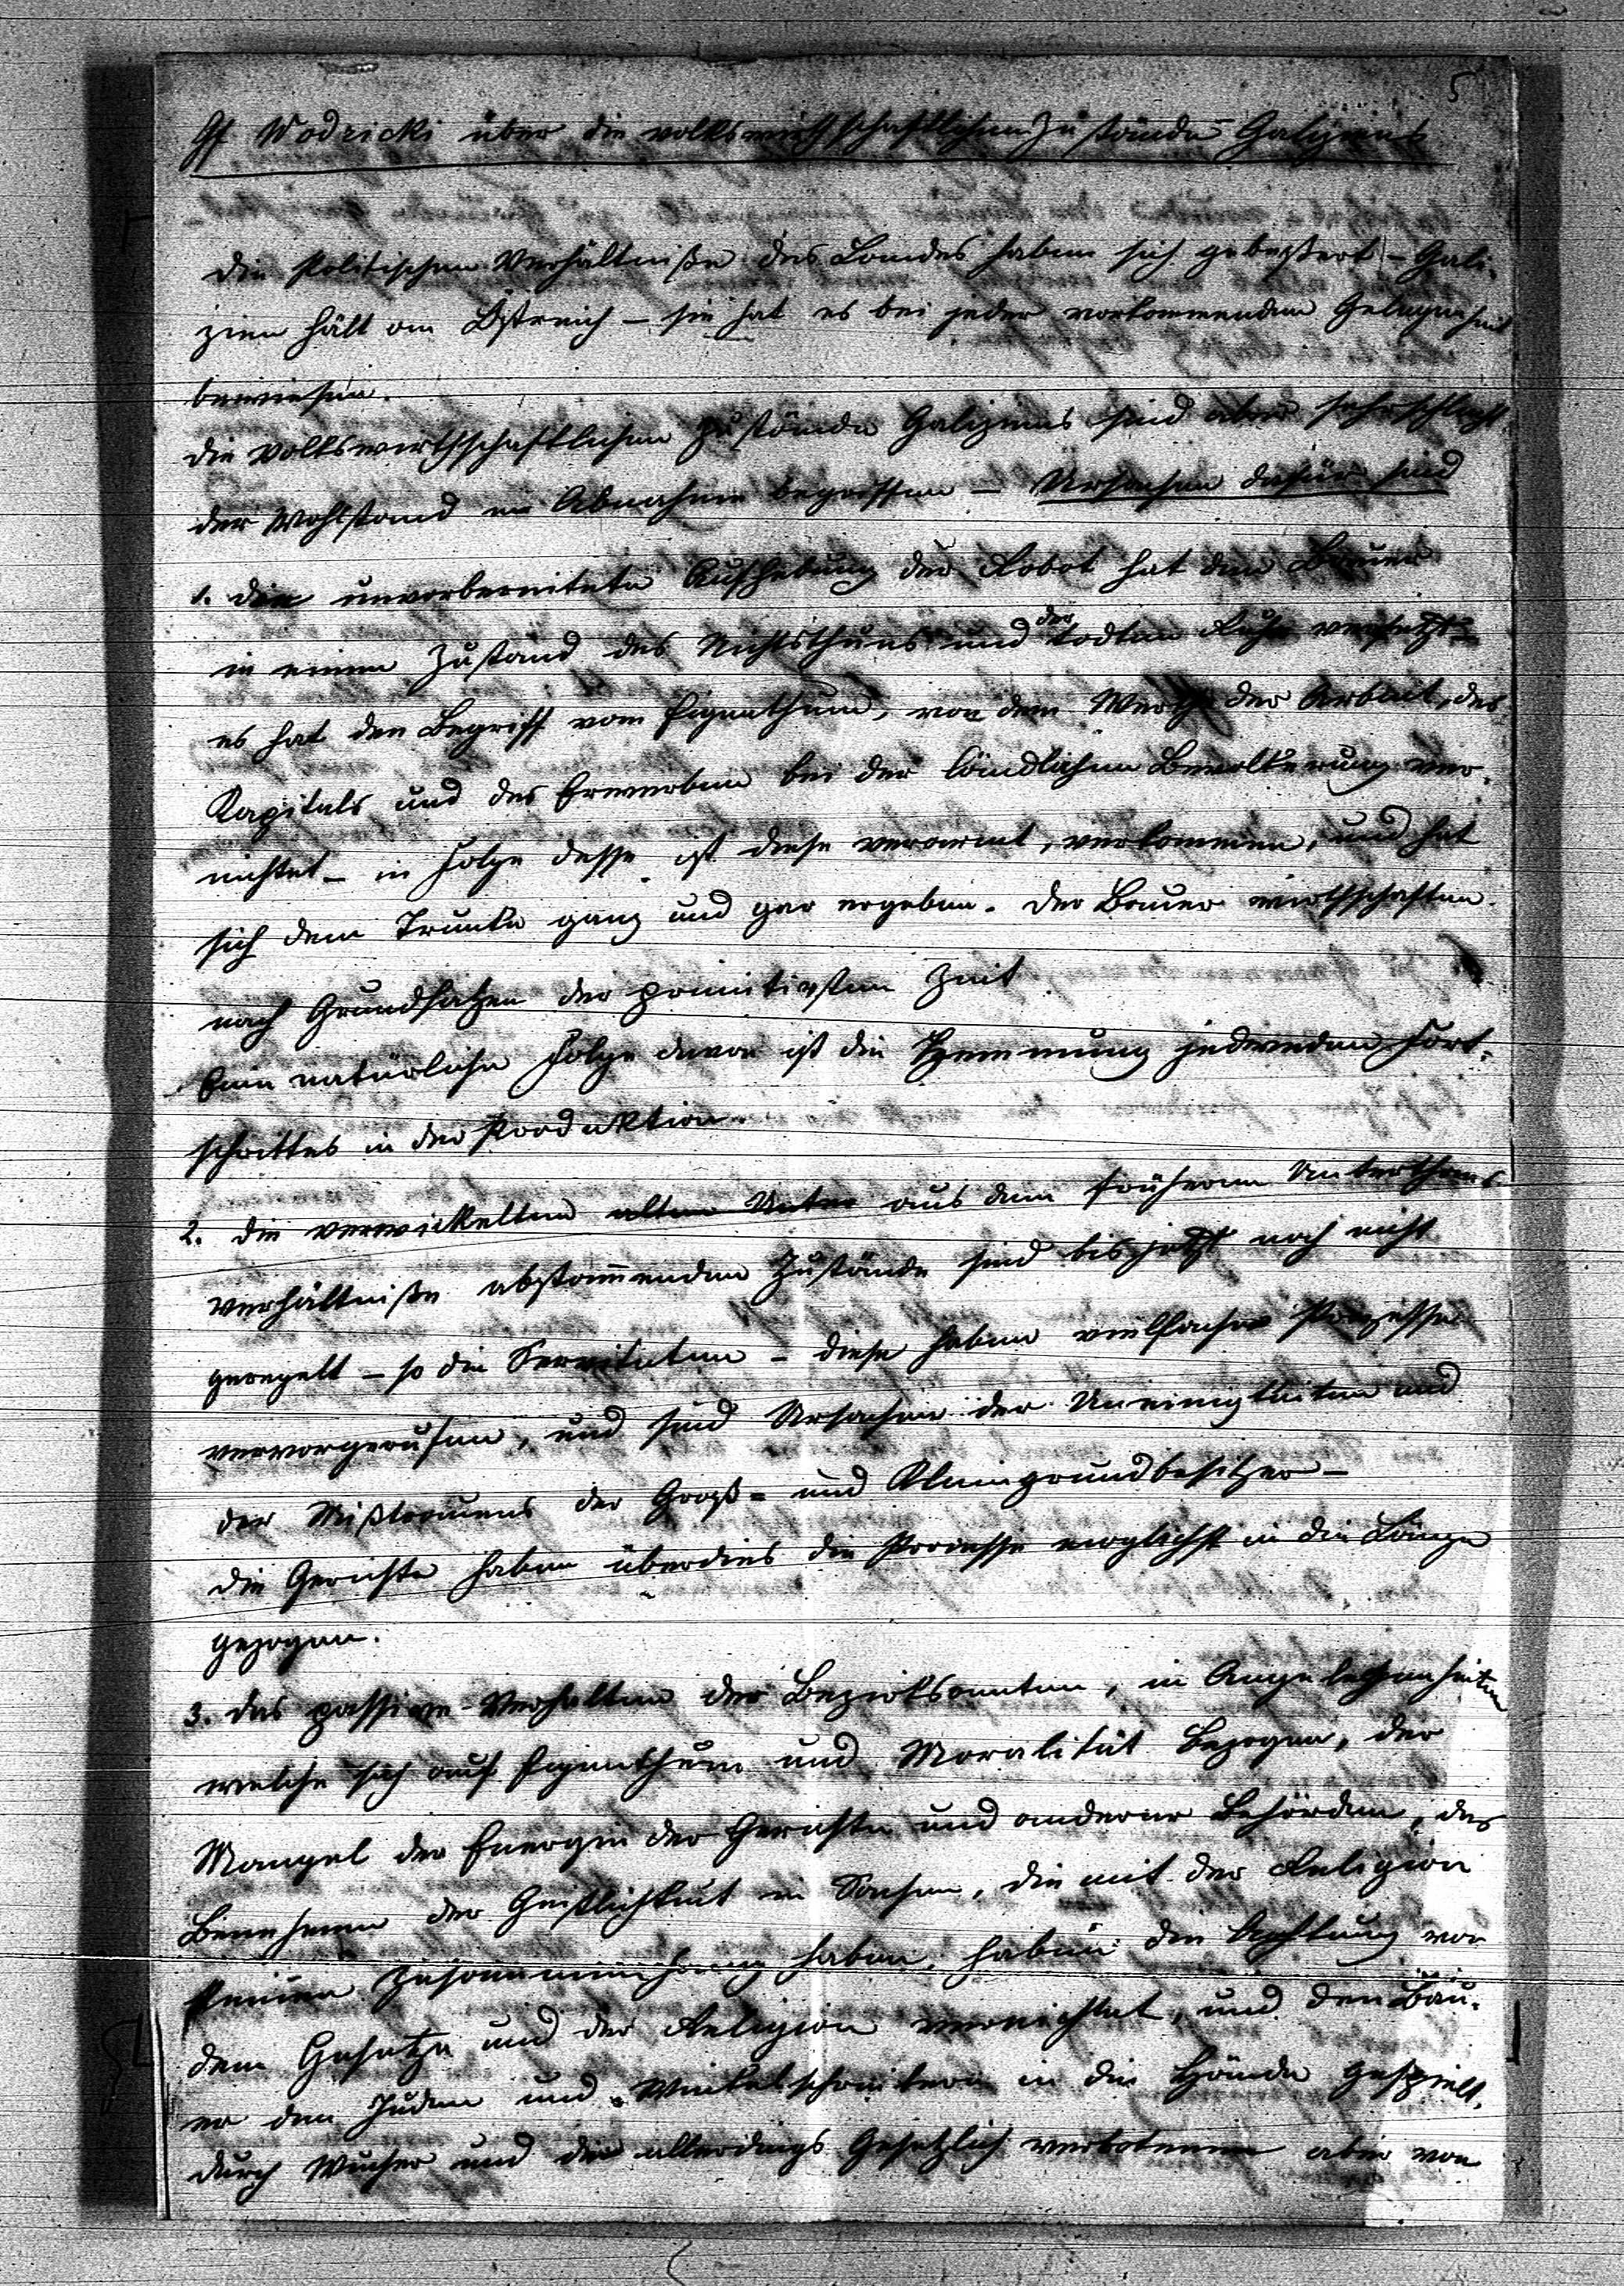 5
Gf Wodzicki über die volkswirthschaftlichen Zustände Galiziens
die politischen Verhältniße des Landes haben sich gebeßert – Gali-
zien hält an Östreich – sie hat es bei jeder vorkommenden Gelegenheit
bewiesen.
die volkswirthschaftlichen Zustände Galiziens sind aber sehr schlecht,
der Wohlstand in Abnahme begriffen – Ursachen dafür sind
1. die unvorbereitete Aufhebung der Robot hat den Bauer
in einen Zustand des Nichtsthuns und der todten Ruhe versetzt –
es hat den Begriff vom Eigenthum, von dem Werthe der Arbeit, des
Kapitals und des Erwerben bei der ländlichen Bevölkerung ver-
nichtet – in Folge desse ist diese verarmt, verkommen, und hat
sich dem Trunke ganz und gar ergeben. der Bauer wirthschaften
nach Grundsatzen der primitivsten Zeit
Eine natürliche Folge davon ist die Hemmung jedweden Fort-
schrittes in der Produktion.
2. die verwickelten alten Unter aus dem früheren Unterthans-
verhältniße abstammenden Zustände sind bis jetzt noch nicht
geregelt – so die Servituten – diese haben vielfache Prozesse
vervorgerufen, und sind Ursachen der Uneinigkeiten und
der Mißtrauens der Groß- und Kleingrundbesitzer –
die Gerichte haben überdies die Processe möglichst in die Länge
gezogen.
3. das passive Verhalten der Bezirksamten, in Angelegenheiten
welche sich auf Eigenthum und Moralität bezogen, der
Mangel der Energie der Gerichte und anderer Behörden, das
Benehmen der Geistlichkeit in Sachen, die mit der Religion
keinen Zusammenhang haben, haben die Achtung vor
dem Gesetze und der Religion vernichtet, und den Bau-
er den Juden und Winkelschreibern in die Hände gespielt.
durch Wucher und die allerdings gesetzlich verbotenen aber von